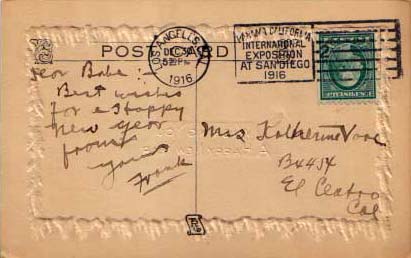 POST CARD
LOS ANGELES, CAL.
DEC 30
1916
PANAMA CALIFORNIA
INTERNATIONAL
EXPOSITION
AT SAN DIEGO
1916
2
Dear Babe :-
Best wishes
for a Happy
New Year
from
yours
Frank
Miss Katherine
B4454
El Centro
Cal